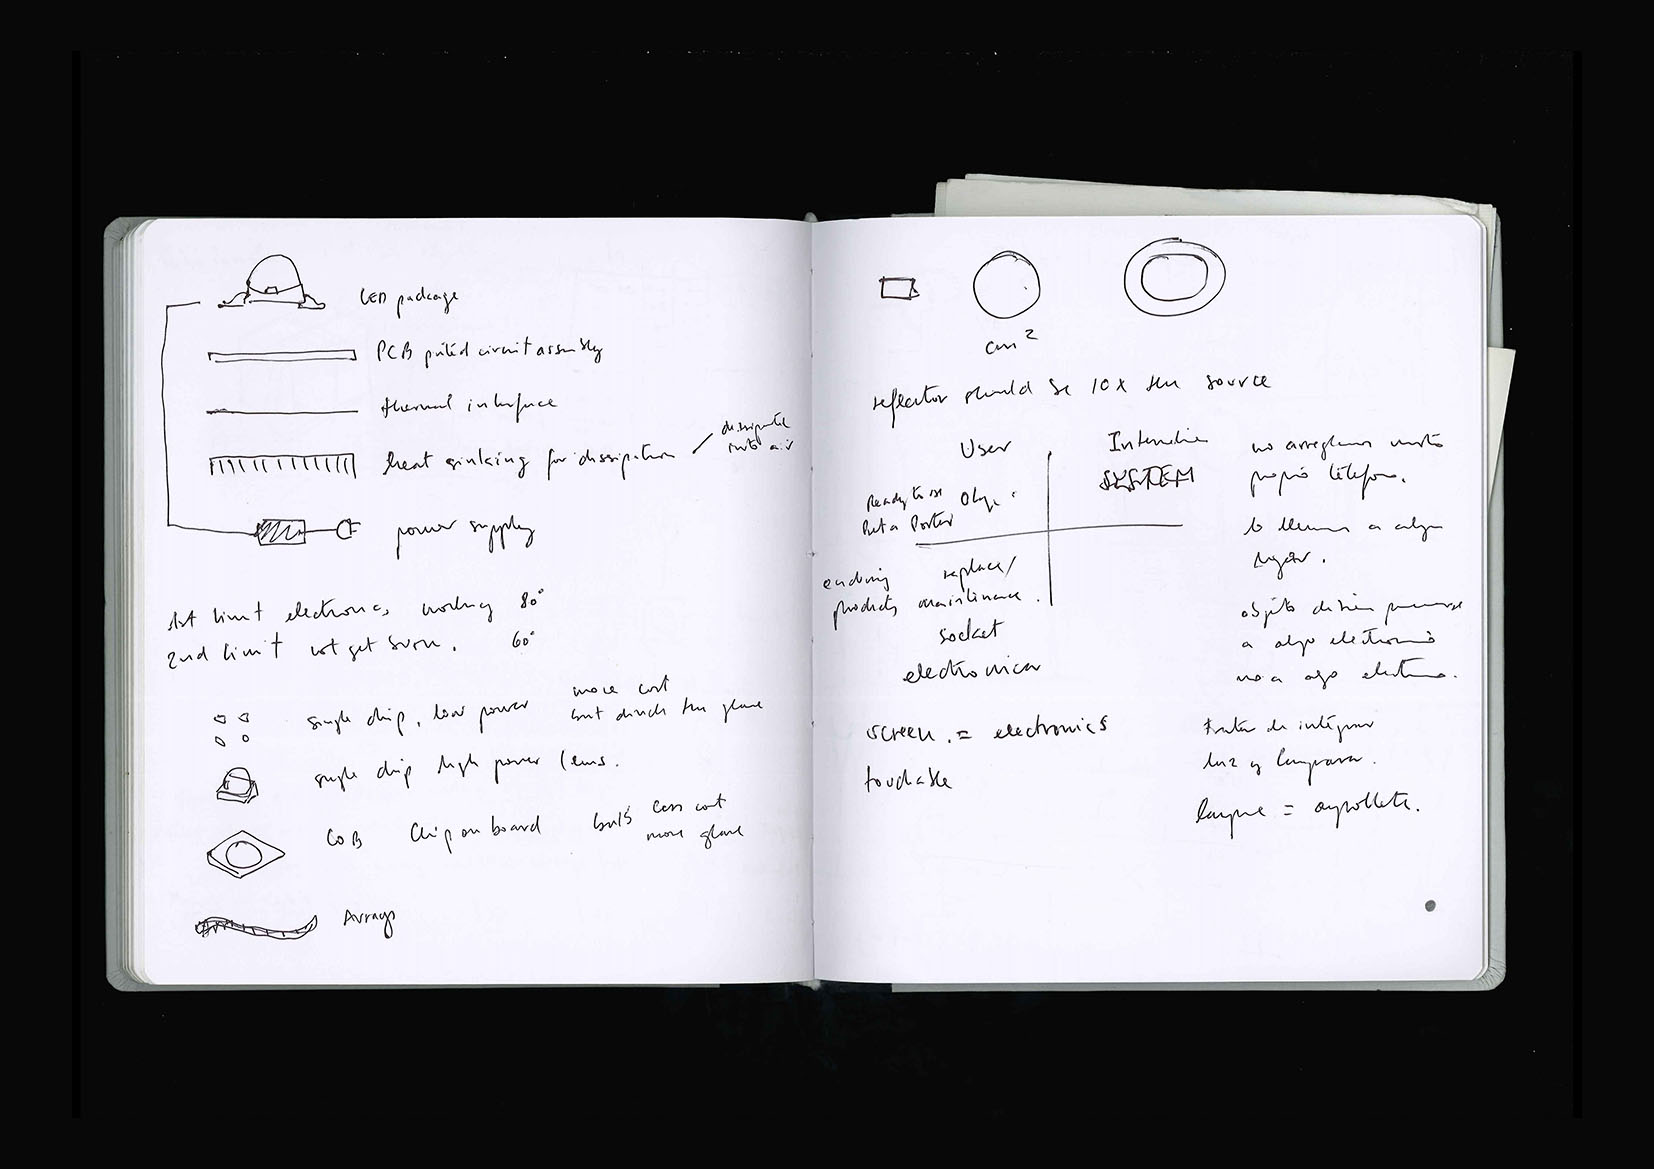 LED package
PCB printed circuit assembly
thermal interface
heat sinking for dissipation
dissipate
into air
power supply
1st limit electronics working 80°
2nd limit not get burn. 60°
single chip, low power
more cost
but divide the glare
single chip high power lens.
COB Chip on board
bulb less cost
more glare
Arrays
cm²
reflector should be 10x the source
User
SYSTEM
Ready to use
Pret a Porter
enduring
products
replace/
maintinance.
socket
electronica
screen = electronics
touchable
no arreglamos nuestro
propio teléfono.
lo llevamos a algun
lugar.
a algo electronico
no a algo
tratar de integrar
luz y lampara.